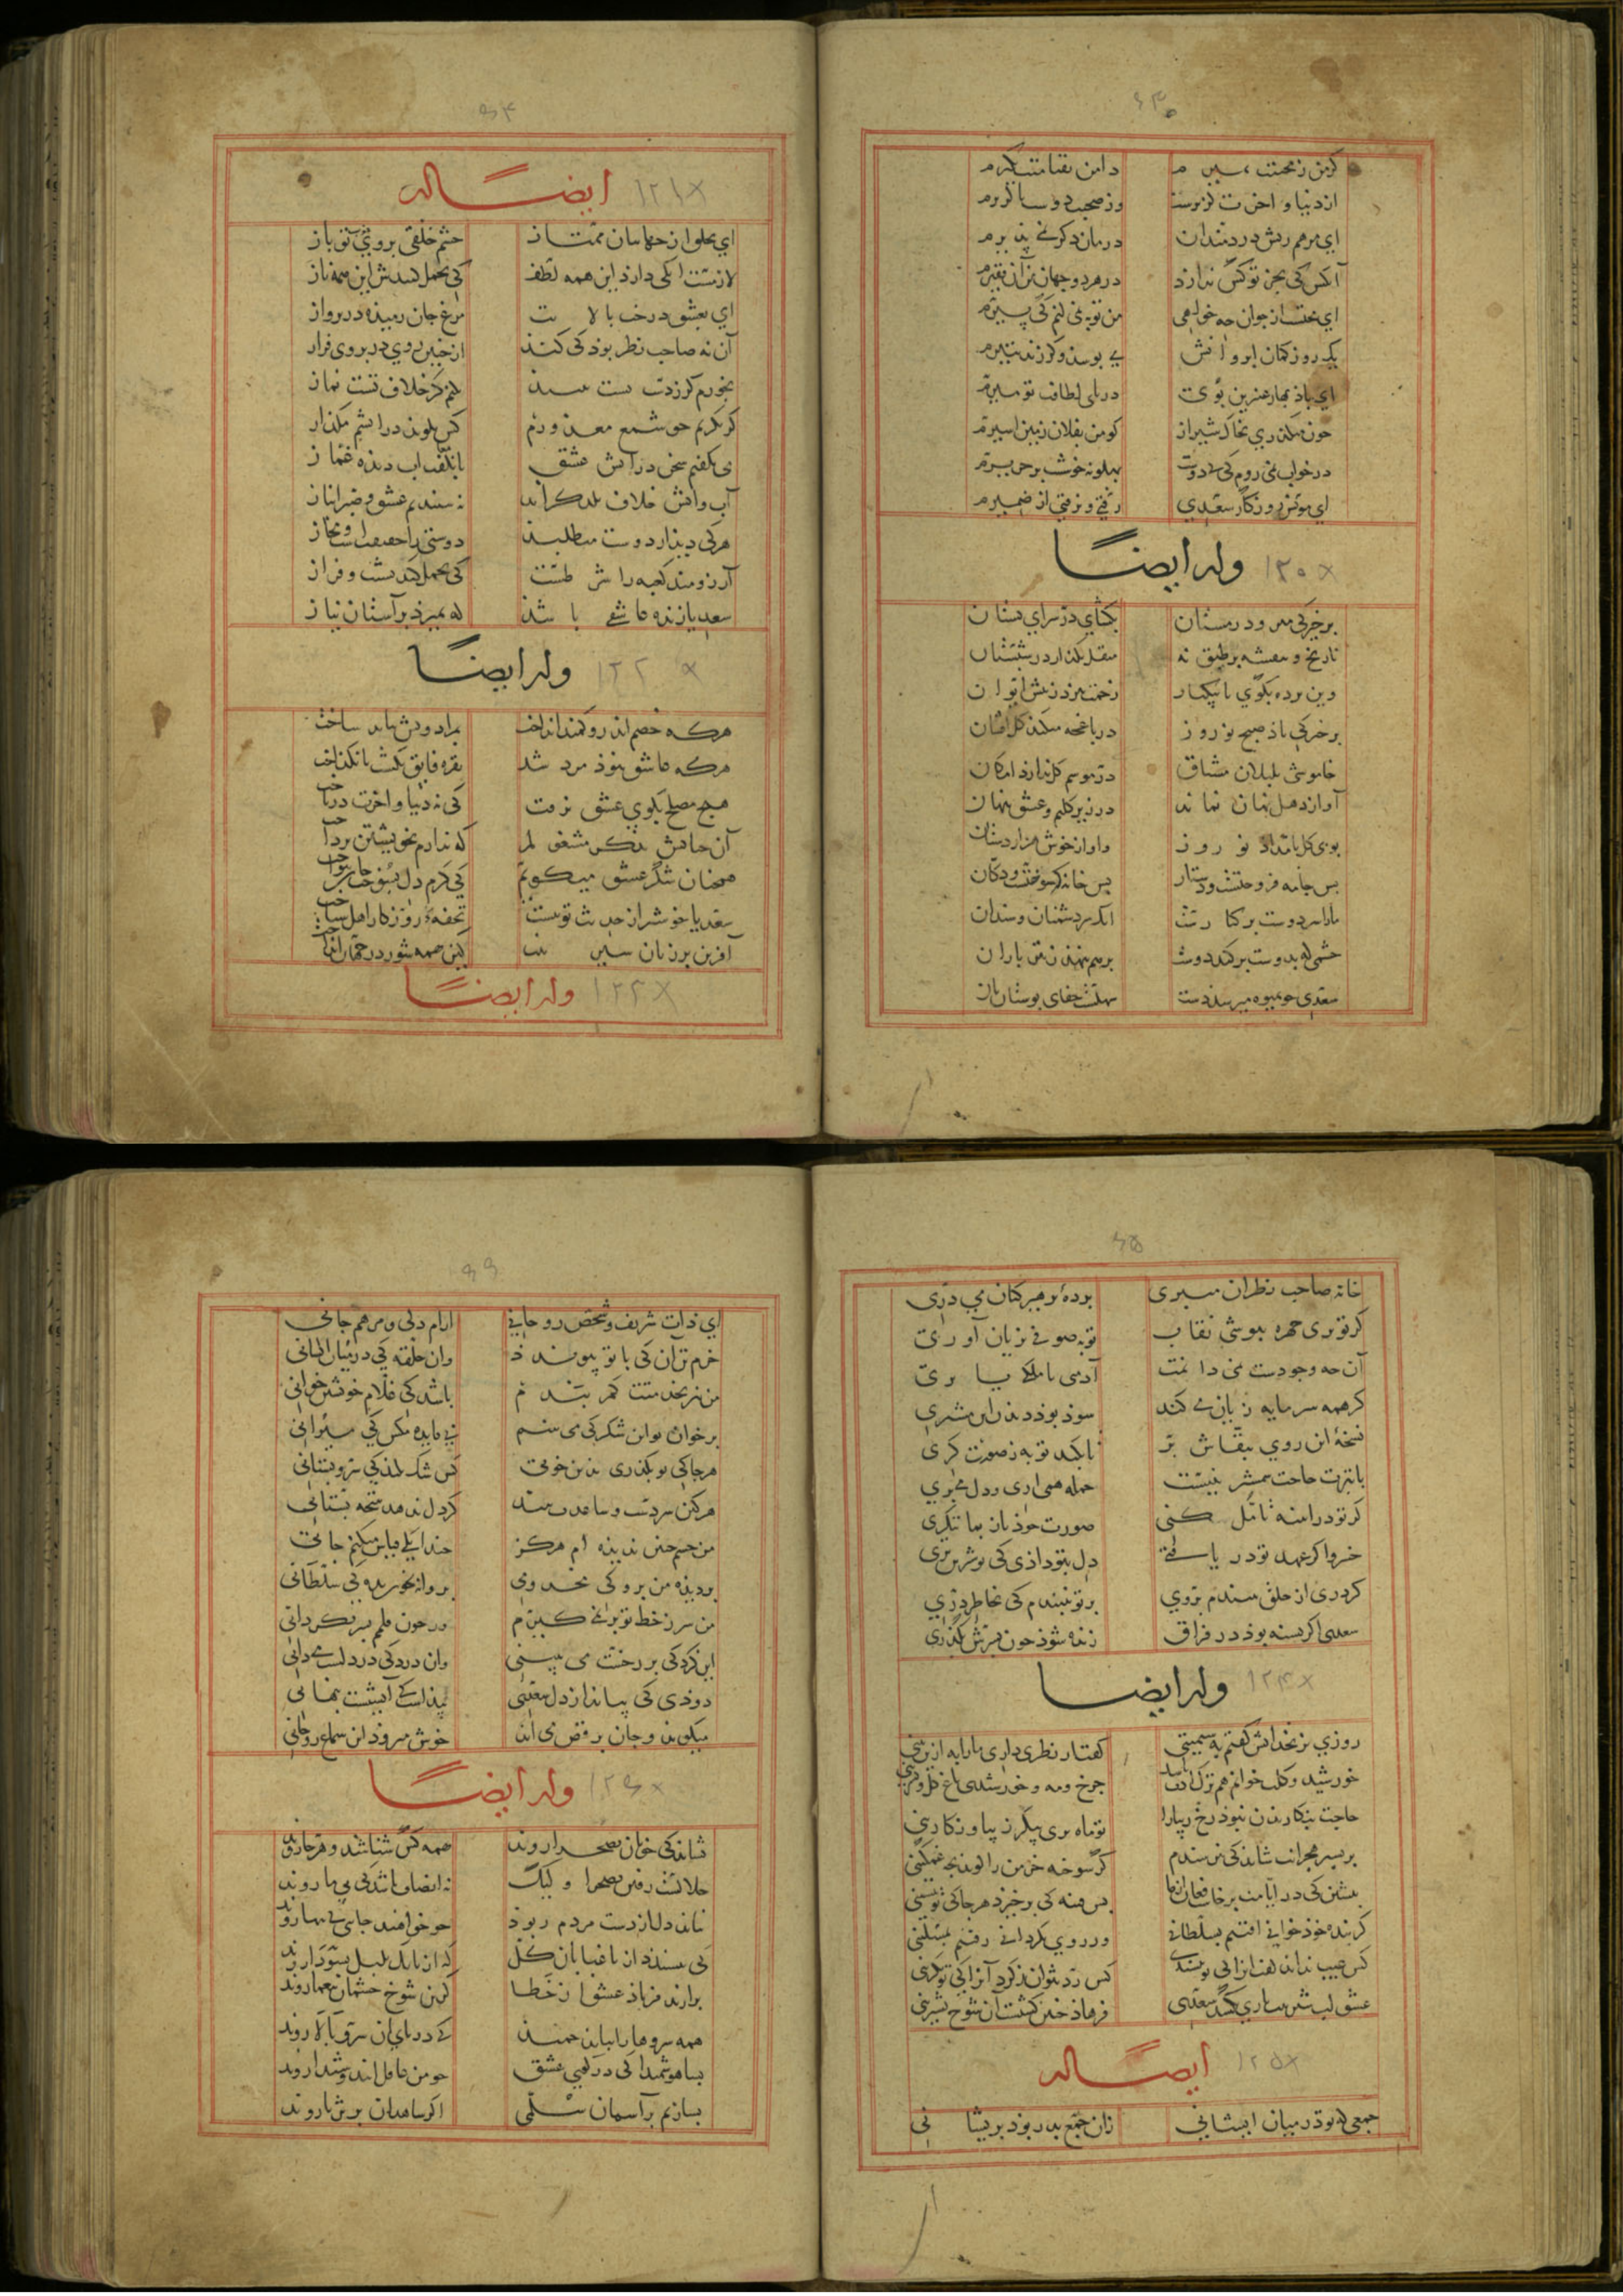 ۶۳
کر من ز محبتت بمیرم دامن بقیامتت بکیرم
از دنیا و اخرت کزیرست وز صحبت دوست ناکزیرم
ای مرهم ریش دردمندان درمان دکر نمی پذیرم
آنکس که بجز تو کس ندارد در هر دو جهان من آن فقیرم
ای محتسب از جوان چه خواهی من توبه نمی کنم کی پیرم
یک روز کمان ابروانش می بوسم و کر زند بتیرم
ای باذ بهار عنبرین بوی در پای لطافت تو میرم
چون میکذری بخاک شیراز کو من بفلان زمین اسیرم
در خواب نمی روم کی بی دوست پهلو نه خوشست بر حریرم
ای مونس روزکار سعدی رفتی و نرفتی از ضمیرم
وله ایضاً ۱۲۰x
برخیز کی میرود زمستان بکشای در سرای بستان
نارنج و بنفشه بر طبق نه منقل بکذار در شبستان
وین برده بکوی تا بیکبار زحمت ببرد ز پیش ایوان
برخیز کی باذ صبح نوروز در باغچه میکند کل افشان
خاموشی بلبلان مشتاق در موسم کل ندارد امکان
آواز دهل نهان نماند در زیر کلیم و عشق پنهان
بوی کل بامداد نوروز واواز خوش هزاردستان
بس جامه فروختست و دستار بس خانه که سوختست و دکان
ما را سر دوست بر کنارست انک سر دشمنان و سندان
چشمی که بدوست بر کند دوست بر هم ننهد ز تیر باران
سعدی چو بمیوه میرسد دست سهلست جفای بوستان بان
۶۴
ایضاً له ۱۲۱x
ای بخلق از جهانیان ممتاز چشم خلقی بروی خوب تو باز
لازمست آنکی دارد این همه لطف کی تحمل کندش این همه ناز
ای بعشق درخت بالایت مرغ جان رمیده در پرواز
آن نه صاحب نظر بود کی کند از چنین روی در بروی فراز
بخورم کر ز دست تست نبید نکنم کر خلاف تست نماز
کر بکریم چو شمع معذورم کس نکوید در اتشم مکداز
می نکفتم سخن در اتش عشق تا نکفت اب دیده غماز
آب واتش خلاف یکدکراند نشنیدیم عشق و صبر انباز
هر کی دیدار دوست میطلبد دوستی را حقیقتست و مجاز
آرزومند کعبه را شرطست کی تحمل کند نشیب و فراز
سعدیا زنده عاشقی باشد که بمیرد بر آستان نیاز
وله ایضاً ۱۲۲x
هر که خصم اندرو کمند انداخت بمراد ویش بباید ساخت
هر که عاشق نبوذ مرد نشد نقره فایق نکشت تا نکداخت
هیچ مصلح بکوی عشق نرفت کی نه دنیا و اخرت درباخت
آن چنانش بذکر مشغولم که ندارم بخویشتن برداخت
همچنان شکر عشق میکویم کی کرم دل بسوخت جان بنواخت
سعدیا خوشتر از حدیث تو نیست تحفهٔ روزکار اهل شناخت
آفرین بر زبان شیرینت کین همه شور در جهان انداخت
وله ایضاً ۱۲۳x
۶۵
خانه صاحب نظران میبری بردهٔ برهیزکنان می دری
کر تو بری چهره ببوشی نقاب توبهٔ صوفی بزیان آوری
آن چه وجودست نمی دانمت آدمی یا ملکی یا بری
کر همه سرمایه زیان می کند سود بود دیدن ان مشتری
نسخهٔ این روی بنقاش بر تا بکند توبه ز صورت کری
با نزرت حاجت شمشیر نیست حمله همی اری و دل میبری
کر تو در اینه تامل کنی صورت خوذ باز بما ننکری
خسرو اکر عهد تو دریافتی دل بتو داذی کی تو شیرین تری
کر دری از خلق ببندم بروی بر تو نبندم کی بخاطر دری
سعدی اکر کشته بود در فراق زنده شود چون بسرش بکذری
وله ایضا ۱۲۴x
روزی بزنخدانش کفتم به سیمینی کفت ار نظری داری ما را به ازین بینی
خورشید و کلت خوانم هم ترک ادب باشد چرخ و مه و خورشیدی باغ کل و نسرینی
حاجت بنکاریدن نبود رخ زیبا را تو ماه بری پیکر زیبا و نکارینی
بر بستر هجرانت شاید کی نبرسندم کس سوخته خرمن را کوید بچه غمکینی
بنشین کی در ایامت برخاست فغان از ما بس فتنه کی برخیزد هر جا کی تو بنشینی
کر بنده خوذ خوانی افتیم بسلطانی ور روی بکردانی رفتیم بمسکینی
کس عیب نیارد کفت انرا کی تو بسندی کس رد نتواند کرد آنرا کی تو بکزینی
عشق لب شیرینت روزی بکشد سعدی فرهاد چنین کشتست ان شوخ بشیرینی
ایضاً له ۱۲۵x
جمعی که تو در میان ایشانی زان جمع بدر بود بریشانی
۶۶
ای ذات شریف و شخص روحانی ارام دلی و مرهم جانی
خرم تن آن کی با تو پیوندد وان حلقه کی در میان ایشانی
من نیز بخدمتت کمر بندم باشد کی غلام خویشتن خوانی
بر خوان تو این شکر کی می بینم بی فایده مکس کی میرانی
هر جا کی تو بکذری بدین خوبی کس شک نکند کی سرو بستانی
هر کین سر دست و ساعدت بیند کر دل ندهد بپنجه بستانی
من جسم چنین ندیده ام هرکز چندانک قیاس میکنم جانی
بر دیدهٔ من برو کی مخدومی بروانه بخون بده کی سلطانی
من سر ز خط تو بر نمی کیرم ور چون قلمم بسر بکردانی
این کرد کی بر رخست می بینی وان درد کی در دلست می دانی
دودی کی بیاید از دل سعدی پیداست کی آتشیست پنهانی
میکوید و جان برقص می اید خوش میرود این سماع روحانی
وله ایضاً ۱۲۶x
شاید کی خوبان بصحرا روند همه کس شناسند و هر جا روند
حلالست رفتن بصحرا ولیک نه انصاف باشد کی بی ما روند
نباید دل از دست مردم ربود چو خواهند جایی کی تنها روند
کی بسندد از باغبانان کل که از بانک بلبل بسودا روند
برارند فریاد عشق از خطا کر این شوخ چشمان بیغما روند
همه سروها را بباید خمید کی در پای ان سرو بالا روند
بسا هوشمندا کی در کوی عشق چو من عاقل ایند و شیدا روند
بسازیم بر آسمان سلمی اکر شاهدان بر ثریا روند